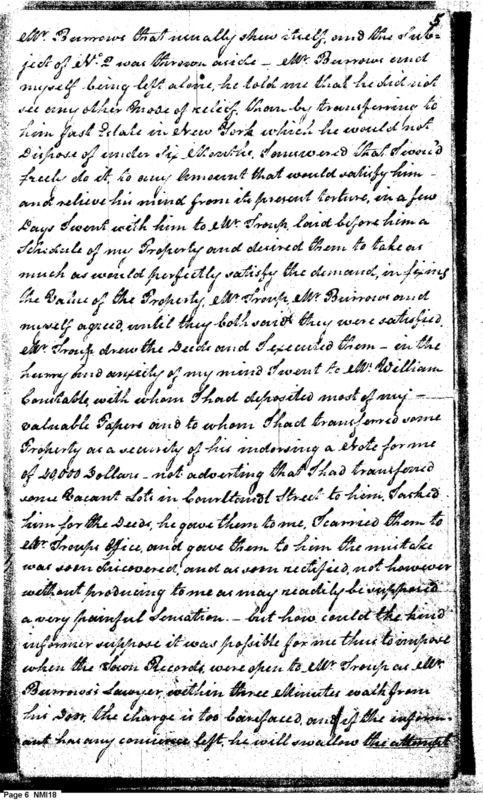 5
Mr. Burrows that usually shew itself, and the Sub-
ject of No. 2 was thrown aside – Mr. Burrows and
myself being left alone, he told me that he did not
see any other Mode of relief, than by transferring to
him fast Estate in New York which he would not
Dispose of under Six Months, I answered that I would
freely do it, to any Amount that would satisfy him –
and relieve his mind from its present torture, in a few
Days I went with him to Mr. Troup, laid before him a
Schedule of my Property and desired them to take as
much as would perfectly satisfy the demand, in fixing
the Value of the Property, Mr. Troup, Mr. Burrows and
myself agreed, until they both said they were satisfied,
Mr. Troup drew the Deeds and I executed them – in the
hurry and anxiety of my mind I went to Mr. William
Constable, with whom I had deposited most of my –
valuable Papers and to whom I had transferred some
Property as a security of his indorsing a Note for me
of 40,000 Dollars – not adverting that I had transferred
some Vacant Lots in Courtlandt Street to him, I asked
him for the Deeds, he gave them to me, I carried them to
Mr. Troups Office, and gave them to him the mistake
was soon discovered, and as soon rectified, not however
without producing to me as may readily be supposed
a very painful Sensation. – but how could the kind
informer suppose it was possible for me thus to impose
when the Town Records, were open to Mr. Troup as Mr.
Burrows's Lawyer, within three Minutes walk from
his Door the charge is too barefaced, and if the inform-
ant has any concience left, he will swallow the attempt
Page 6 NMI18